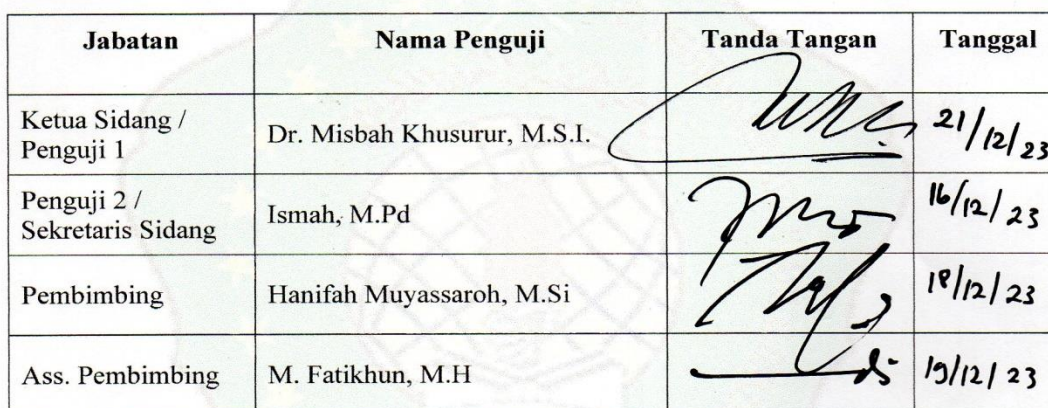 Jabatan Nama Penguji Tanda Tangan Tanggal
Ketua Sidang /
Penguji 1 Dr. Misbah Khusurur, M.S.I. 21/12/23
Penguji 2 /
Sekretaris Sidang Ismah, M.Pd 16/12/23
Pembimbing Hanifah Muyassaroh, M.Si 18/12/23
Ass. Pembimbing M. Fatikhun, M.H 19/12/23